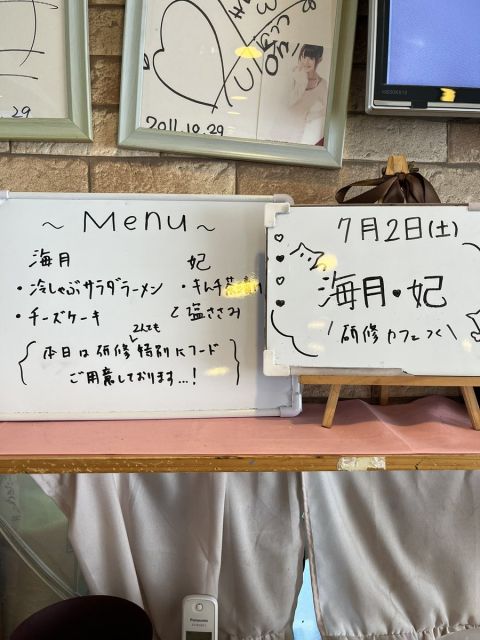 29
2011.10.29
~ Menu ~
海月
・冷しゃぶサラダラーメン
・チーズケーキ
妃
・キムチ
と塩ささみ
2人でも
本日は研修特別にフード
ご用意しております…!
7月2日(土)
海月♥妃
\研修カフェつく\
Panasonic